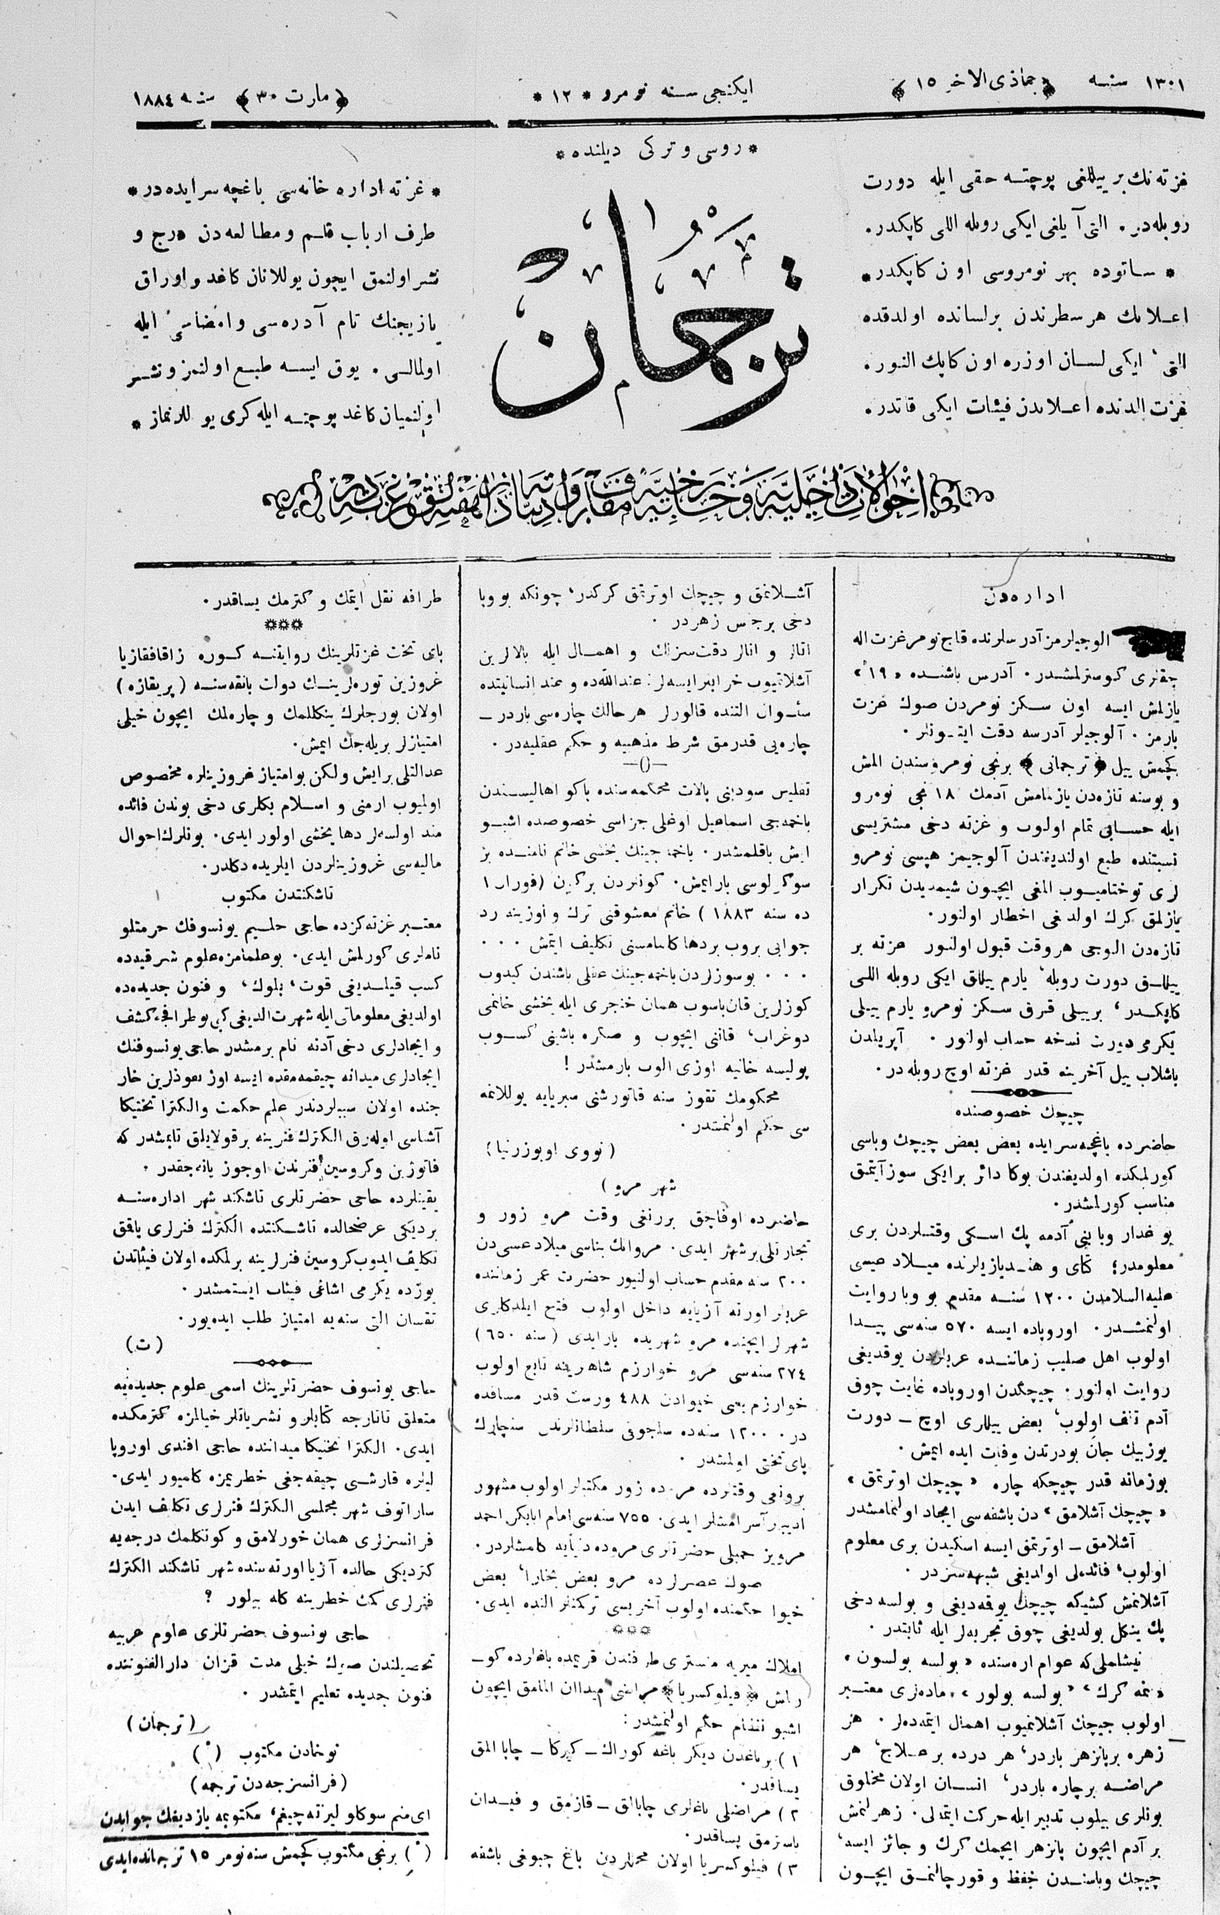 ١٣٠١ سنه ﴿ جماذی الاخر ١٥ ﴾
ایکنجی سنه نومرو * ١٢ *
﴿ مارت ٣٠ ﴾ سنه ١٨٨٤
* روسی و ترکی دیلنده *
غزته نك بر ییللغی پوچته حقی ایله دورت
روبله در. التی آیلغی ایکی روبله اللی کاپکدر.
* ساتوده بهر نومروسی اون کاپکدر *
اعلانك هر سطرندن بر لسانده اولدقده
التی، ایکی لسان اوزره اون کاپك النور.
غزت الدنده اعلاندن فیئات ایکی قاتدر.
ترجمان
* غزته اداره خانه سی باغچه سرایده در *
طرف ارباب قلم و مطالعه دن درج و
نشر اولنمق ایچون یوللانان کاغد و اوراق
یازیجنك تام آدره سی و امضاسی ایله
اولمالی. یوق ایسه طبع اولنمز و نشر
اولنمیان کاغد پوچته ایله کری یوللانماز *
اداره دن
الوجیلرمز آدرسلرنده قاچ نومر غزت اله
جقلری کوسترلمشدر. آدرس باشنده «١٩»
یازلمش ایسه اون سکز نومردن صوك غزت
بارمز. آلوجیلر آدرسه دقت ایتسونلر.
کچمش ییل ﴿ ترجمانی ﴾ برنجی نومروسندن المش
و بو سنه تازه دن یازلمامش آدمك ١٨ نجی نومرو
ایله حسابی تمام اولوب و غزته دخی مشتریسی
نسبتنده طبع اولندیغندن آلوجیمز هپسی نومرو
لری توختامیوب المغی ایچون شیمدیدن تکرار
یازلمق کرك اولدیغی اخطار اولنور.
تازه دن الوجی هر وقت قبول اولنور غزته بر
ییللق دورت روبله، یارم ییللق ایکی روبله اللی
کاپکدر، بر ییلی قرق سکز نومرو یارم ییلی
یکرمی دورت نسخه حساب اولنور. آپریلدن
باشلاب ییل آخرینه قدر غزته اوچ روبله در.
چیچك خصوصنده
حاضرده باغچه سرایده بعض بعض چیچك وباسی
کورلمکده اولدیغندن بوکا دائر بر ایکی سوز آیتمق
مناسب کورلمشدر.
بو غدار وبا بنی آدمه پك اسکی وقتلردن بری
معلومدر؛ کتای و هند یازیلرنده میلاد عیسی
علیه السلامدن ١٢٠٠ سنه مقدم بو وبا روایت
اولنمشدر. اوروپاده ایسه ٥٧٠ سنه سی پیدا
اولوب اهل صلیب زماننده عربلردن یوقدیغی
روایت اولنور. چیچکدن اوروپاده غایت چوق
آدم تلف اولوب، بعض ییللری اوچ ـ دورت
یوزبیك جان بودردن وفات ایده ایمش.
بو زمانه قدر چیچکه چاره «چیچك اوترتمق»
«چیچك آشلامق» دن باشقه سی ایجاد اولنمامشدر
آشلامق ـ اوترتمق ایسه اسکیدن بری معلوم
اولوب، فائده لی اولدیغی شبهه سزدر.
آشلانمش کشیکه چیچك یوقه دیغی و بولسه دخی
پك ینکل بولدیغی چوق تجربه لر ایله ثابتدر.
نیشاملی که عوام اره سنده «بولسه بولسون»
«نمه کرك» «بولسه بولور»، ماده لری معتبر
اولوب چیچك آشلانمیوب اهمال ایتمه ده لر. هر
زهره بر پانزهر باردر، هر درده بر علاج، هر
مراضه بر چاره باردر، انسان اولان مخلوق
بونلری بیلوب تدبیر ایله حرکت ایتملی. زهرلنمش
بر آدم ایچون پانزهر ایچمك کرك و جائز ایسه،
چیچك وباسندن حفظ و قورچالنمق ایچون
آشلانمق و چیچك اوترتمق کرکدر، چونکه بو وبا
دخی بر جنس زهردر.
اتالر و انالر دقت سزلك و اهمال ایله بالالرین
آشلاتیوب خراب ایرسه لر: عند الله ده و عند انسانیتده
سئوال التنده قالورلر هر حالك چاره سی باردر ـ
چاره یی قدرمق شرط مذهبیه و حکم عقلیه در.
تفلیس سودبنی پالات محکمه سنده باکو اهالیسندن
باخمه جی اسماعیل اوغلی جزاسی خصوصده اشبو
ایش باقلمشدر. باخمه جینك یخشی خانم نامنده بر
سوکولوسی بار ایمش. کونلردن بر کون (فورار ١
ده سنه ١٨٨٣) خانم معشوقنی ترك و اوزینه رد
جوابی بروب بردها کلمامسنی تکلیف ایتمش ...
... بو سوزلردن باخمه جینك عقلی باشندن کیدوب
کوزلرین قان باسوب همان خنجری ایله یخشی خانمی
دوغراب، قاننی ایچوب و صکره باشینی کسوب
پولیسه خانیه اوزی الوب بارمشدر!
محکومك تقوز سنه قاتورشنی سبریایه یوللانمه
سی حکم اولنمشدر.
(نووی اوبوزرنیا)
شهر مرو)
حاضرده اوفاجق بررنغی وقت مرو زور و
تجارتلی بر شهر ایدی. مروانك بناسی میلاد عسی دن
٢٠٠ سنه مقدم حساب اولنیور حضرت عمر زماننده
عربلر اورته آزیایه داخل اولوب فتح ایلدکلری
شهرلر ایچنده مرو شهریده بار ایدی (سنه ٦٥٠)
٢٧٤ سنه سی مرو خوارزم شاهرینه تابع اولوب
خوارزم یعنی خیوادن ٤٨٨ ورست قدر مسافده
در. ١٢٠٠ سنه ده سلجوق سلطانلرندن سنجارك
پای تختی اولمشدر.
برونغی وقتلرده مروده زور مکتبلر اولوب مشهور
ادیبلر آسرانمشلر ایدی. ٧٥٥ سنه سی امام ابابکر احمد
مرویز حمبلی حضرتلری مروده دنیایه کلمشلردر.
صوك عصرلرده مرو بعض بخارا، بعض
خیوا حکمنده اولوب آخریسی ترکمنلر النده ایدی.
***
املاك میریه منستری طرفندن قریمده باغلرده کو ـ
رلمش ﴿ فیلوکسریا ﴾ مراضی میدان المامق ایچون
اشبو نظام حکم اولنمشدر:
١) بر باغدن دیکر باغه کوراك ـ کیرکا ـ چاپا المق
یساقدر.
٢) مراضلی باغلری چاپالق ـ قازمق و فیدان
باسترمق یساقدر.
٣) فیلوکسریا اولان محللردن باغ چبوغی باشقه
طرافه نقل ایتمك و کترمك یساقدر.
***
پای تخت غزتلرینك روایتنه کوره زاقافقازیا
غروزین توره لرینك دولت بانقه سنه (پریقازه)
اولان بورجلرك ینکللمك و چاره لمك ایچون خیلی
امتیازلر بریله جك ایمش.
عدالتلی بر ایش ولکن بو امتیاز غروزینلره مخصوص
اولمیوب ارمنی و اسلام بکلری دخی بوندن فائده
مند اولسه لر دها یخشی اولور ایدی. بونلرك احوال
مالیه سی غروزینلردن ایلریده دکلدر.
تاشکنتدن مکتوب
معتبر غزته کزده حاجی حلیم یونسوفك حرمتلو
ناملری کورلمش ایدی. بو علمنمزه علوم شرقیه ده
کسب قیلدیغی قوت، بلوك، و فنون جدیده ده
اولدیغی معلوماتی ایله شهرت الدیغی کبی بو طرافجه کشف
و ایجادلری دخی آدنه نام برمشدر حاجی یونسوفنك
ایجادلری میدانه چیقمه مقده ایسه اوز نفوذلرین خار
جنده اولان سبیلردندر علم حکمت و الکترا تختیکا
آشناسی اوله رق الکترك فنرینه بر قولایلق تابمشدر که
فاتوژین و کروسین فنرندن اوجوز یانه جقدر.
یقینلرده حاجی حضرتلری تاشکند شهر اداره سنه
بردیکی عرضحالده تاشکنتده الکترك فنرلری یاقمق
تکلیف ایدوب کروسین فنرلرینه برلمکده اولان فیئاتدن
یوزده یکرمی اشاغی فیئات ایستمشدر.
نقسان التی سنه یه امتیاز طلب ایده یور.
(ت)
حاجی یونسوف حضرتلرینك اسمی علوم جدیده یه
متعلق تاتارجه کتابلر و نشریاتلر خیالمزه کترمکده
ایدی. الکترا تختیکا میداننده حاجی افندی اوروپا
لیلره قارشی چیقه جغی خطریمزه کلمیور ایدی.
ساراتوف شهر مجلسی الکترك فنرلری تکلیف ایدن
فرانسزلری همان خورلامق و کوتکلمك درجه یه
کتردیکی حالده آزیا اورته سنده شهر تاشکند الکترك
فنرلری کمك خطرینه کله بیلور ؟
حاجی یونسوف حضرتلری علوم عربیه
تحصیلندن صوك خیلی مدت قزان دار الفنوننده
فنون جدیده تعلیم ایتمشدر.
(ترجمان)
نوخادن مکتوب (*)
(فرانسزجه دن ترجمه)
ای منم سوکلو لیزته چیغم، مکتوبمه یازدیغك جوابدن
(*) برنجی مکتوب کچمش سنه نومر ١٥ ترجمانده ایدی